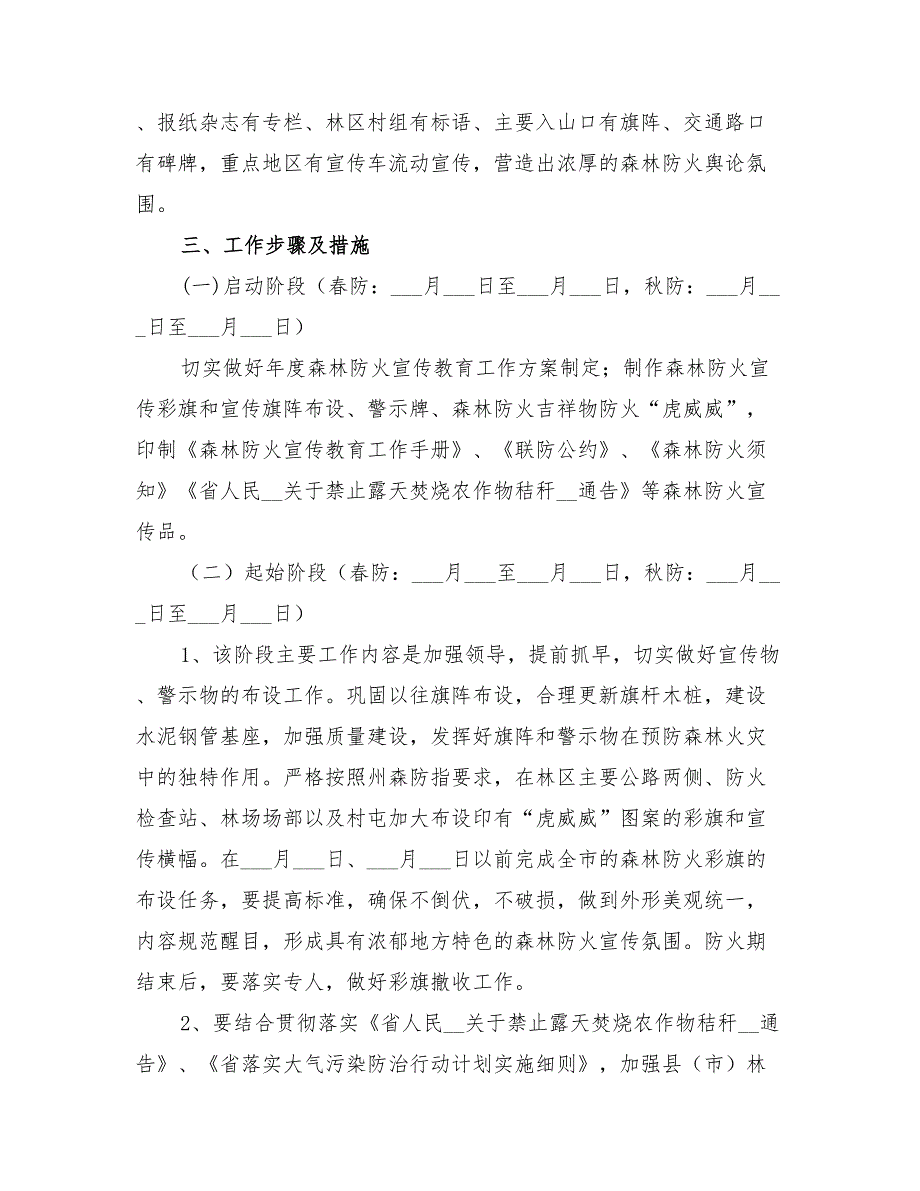 、报纸杂志有专栏、林区村组有标语、主要入山口有旗阵、交通路口
有碑牌，重点地区有宣传车流动宣传，营造出浓厚的森林防火舆论氛
围。
三、工作步骤及措施
(一)启动阶段（春防：___月___日至___月___日，秋防：___月__
_日至___月___日）
切实做好年度森林防火宣传教育工作方案制定；制作森林防火宣
传彩旗和宣传旗阵布设、警示牌、森林防火吉祥物防火“虎威威”，
印制《森林防火宣传教育工作手册》、《联防公约》、《森林防火须
知》《省人民__关于禁止露天焚烧农作物秸秆__通告》等森林防火宣
传品。
（二）起始阶段（春防：___月___至___月___日，秋防：___月__
_日至___月___日）
1、该阶段主要工作内容是加强领导，提前抓早，切实做好宣传物
、警示物的布设工作。巩固以往旗阵布设，合理更新旗杆木桩，建设
水泥钢管基座，加强质量建设，发挥好旗阵和警示物在预防森林火灾
中的独特作用。严格按照州森防指要求，在林区主要公路两侧、防火
检查站、林场场部以及村屯加大布设印有“虎威威”图案的彩旗和宣
传横幅。在___月___日、___月___日以前完成全市的森林防火彩旗的
布设任务，要提高标准，确保不倒伏，不破损，做到外形美观统一，
内容规范醒目，形成具有浓郁地方特色的森林防火宣传氛围。防火期
结束后，要落实专人，做好彩旗撤收工作。
2、要结合贯彻落实《省人民__关于禁止露天焚烧农作物秸秆__通
告》、《省落实大气污染防治行动计划实施细则》，加强县（市）林